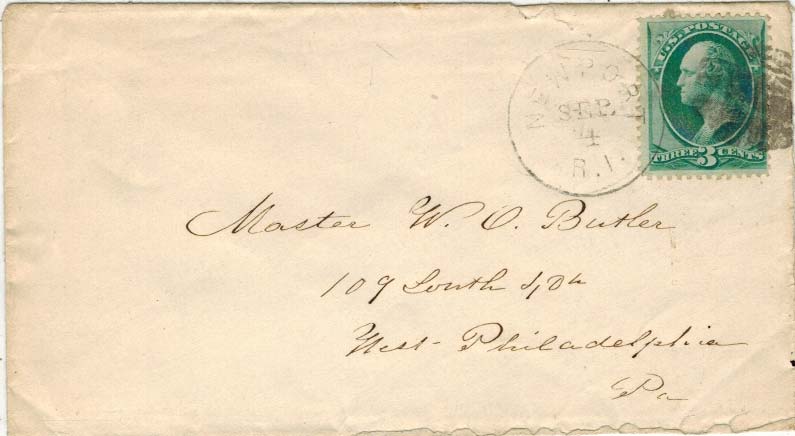 U.S. POSTAGE
THREE 3 CENTS
NEWPORT
SEP.
4
R.I.
Master W. O. Butler
109 South
West Philadelphia
Pa